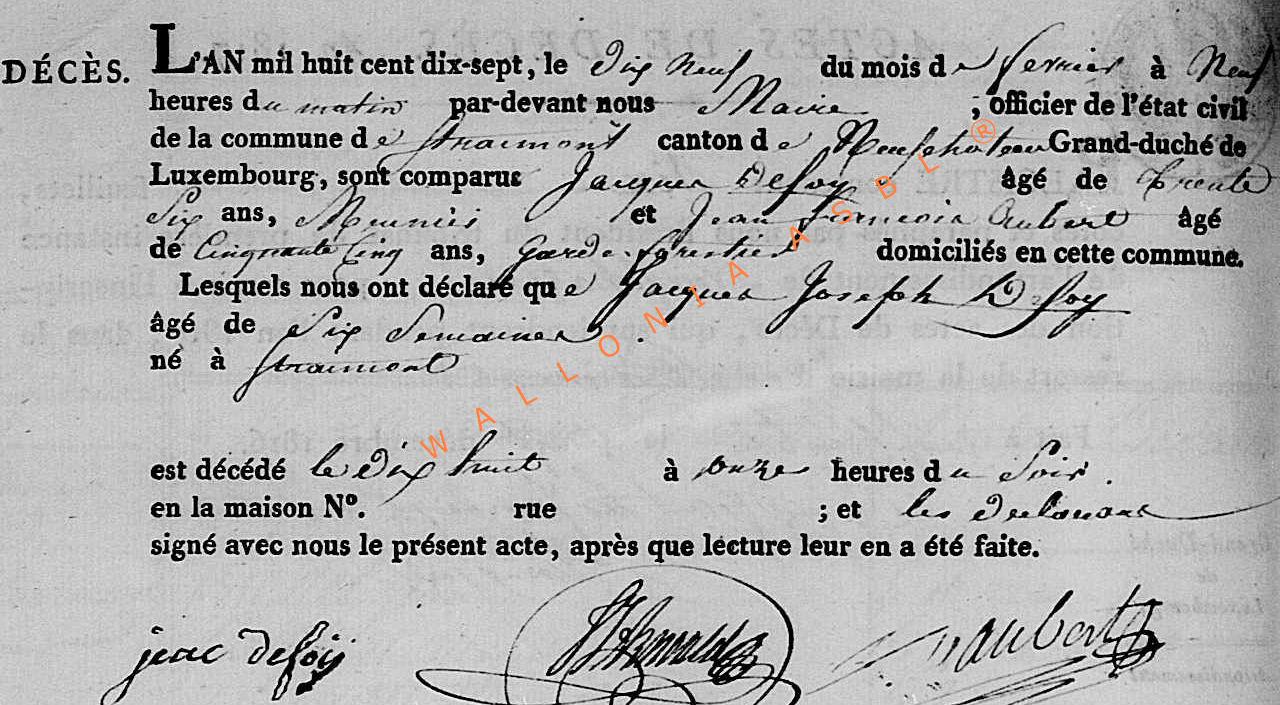 DÉCÈS. L'AN mil huit cent dix-sept, le dix neuf du mois de fevrier à neuf
heures du matin par-devant nous Maire ; officier de l'état civil
de la commune de Straimont canton de Neufchateau Grand-duché de
Luxembourg, sont comparus Jacques Defoy âgé de trente
Six ans, Meunier et Jean francois Aubert âgé
de Cinquante Cinq ans, Garde forestier domiciliés en cette commune.
Lesquels nous ont déclaré que Jacques Joseph Defoy
âgé de Six Semaines.
né à Straimont
est décédé le dix huit à onze heures du Soir.
en la maison N°. rue ; et les declarans
signé avec nous le présent acte, après que lecture leur en a été faite.
defoy aubert
WALLONIA ASBL ®